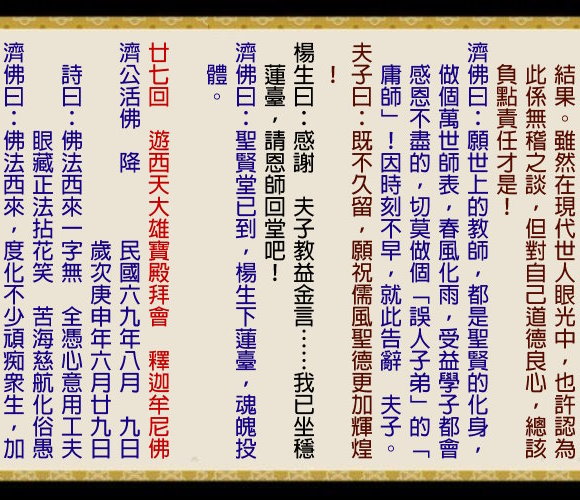 結果。雖然在現代世人眼光中，也許認為
此係無稽之談，但對自己道德良心，總該
負點責任才是！
濟佛曰：願世上的教師，都是聖賢的化身，
做個萬世師表，春風化雨，受益學子都會
感恩不盡的，切莫做個「誤人子弟」的「
庸師」！因時刻不早，就此告辭　夫子。
夫子曰：既不久留，願祝儒風聖德更加輝煌
！
楊生曰：感謝　夫子教益金言……我已坐穩
蓮臺，請恩師回堂吧！
濟佛曰：聖賢堂已到，楊生下蓮臺，魂魄投
體。
廿七回　遊西天大雄寶殿拜會　釋迦牟尼佛
濟公活佛　降　民國六九年八月　九日
歲次庚申年六月廿九日
詩曰：佛法西來一字無　全憑心意用工夫
眼藏正法拈花笑　苦海慈航化俗愚
濟佛曰：佛法西來，度化不少頑痴眾生，加